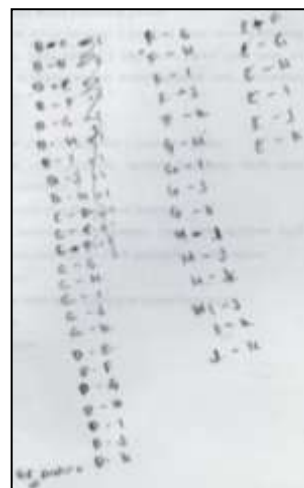 B - C
B - D
B - E
B - F
B - G
B - H
B - I
B - J
B - K
C - D
C - E
C - F
C - G
C - H
C - I
C - J
C - K
D - E
D - F
D - G
D - H
D - I
D - J
D - K
F - G
F - H
F - I
F - J
F - K
G - H
G - I
G - J
G - K
H - I
H - J
H - K
I - J
I - K
J - K
E - F
E - G
E - H
E - I
E - J
E - K